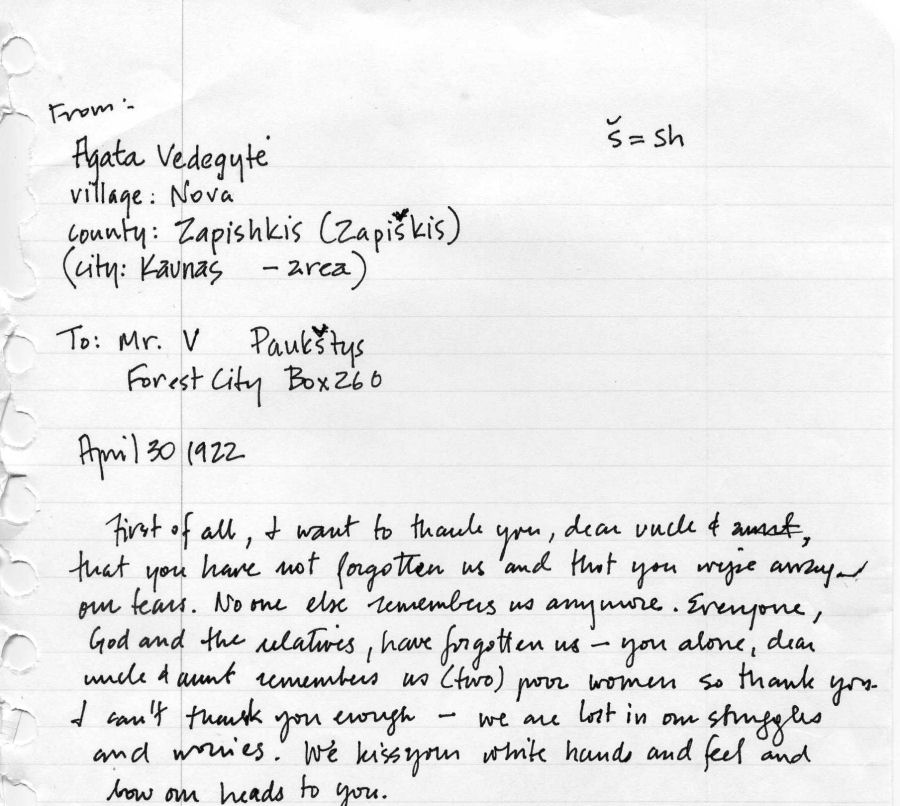 From:
š = sh
Agata Vedegytė
village: Nova
county: Zapishkis (Zapiškis)
(city: Kaunas - area)
To: Mr. V Paukštys
Forest City Box 260
April 30 1922
First of all, I want to thank you, dear uncle & aunt,
that you have not forgotten us and that you wipe away
our tears. No one else remembers us anymore. Everyone,
God and the relatives, have forgotten us – you alone, dear
uncle & aunt remembers us (two) poor women so thank you.
I can't thank you enough – we are lost in our struggles
and worries. We kiss your white hands and feel and
bow our heads to you.